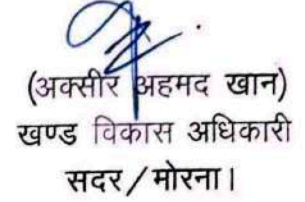 (अक्सीर अहमद खान)
खण्ड विकास अधिकारी
सदर / मोरना।